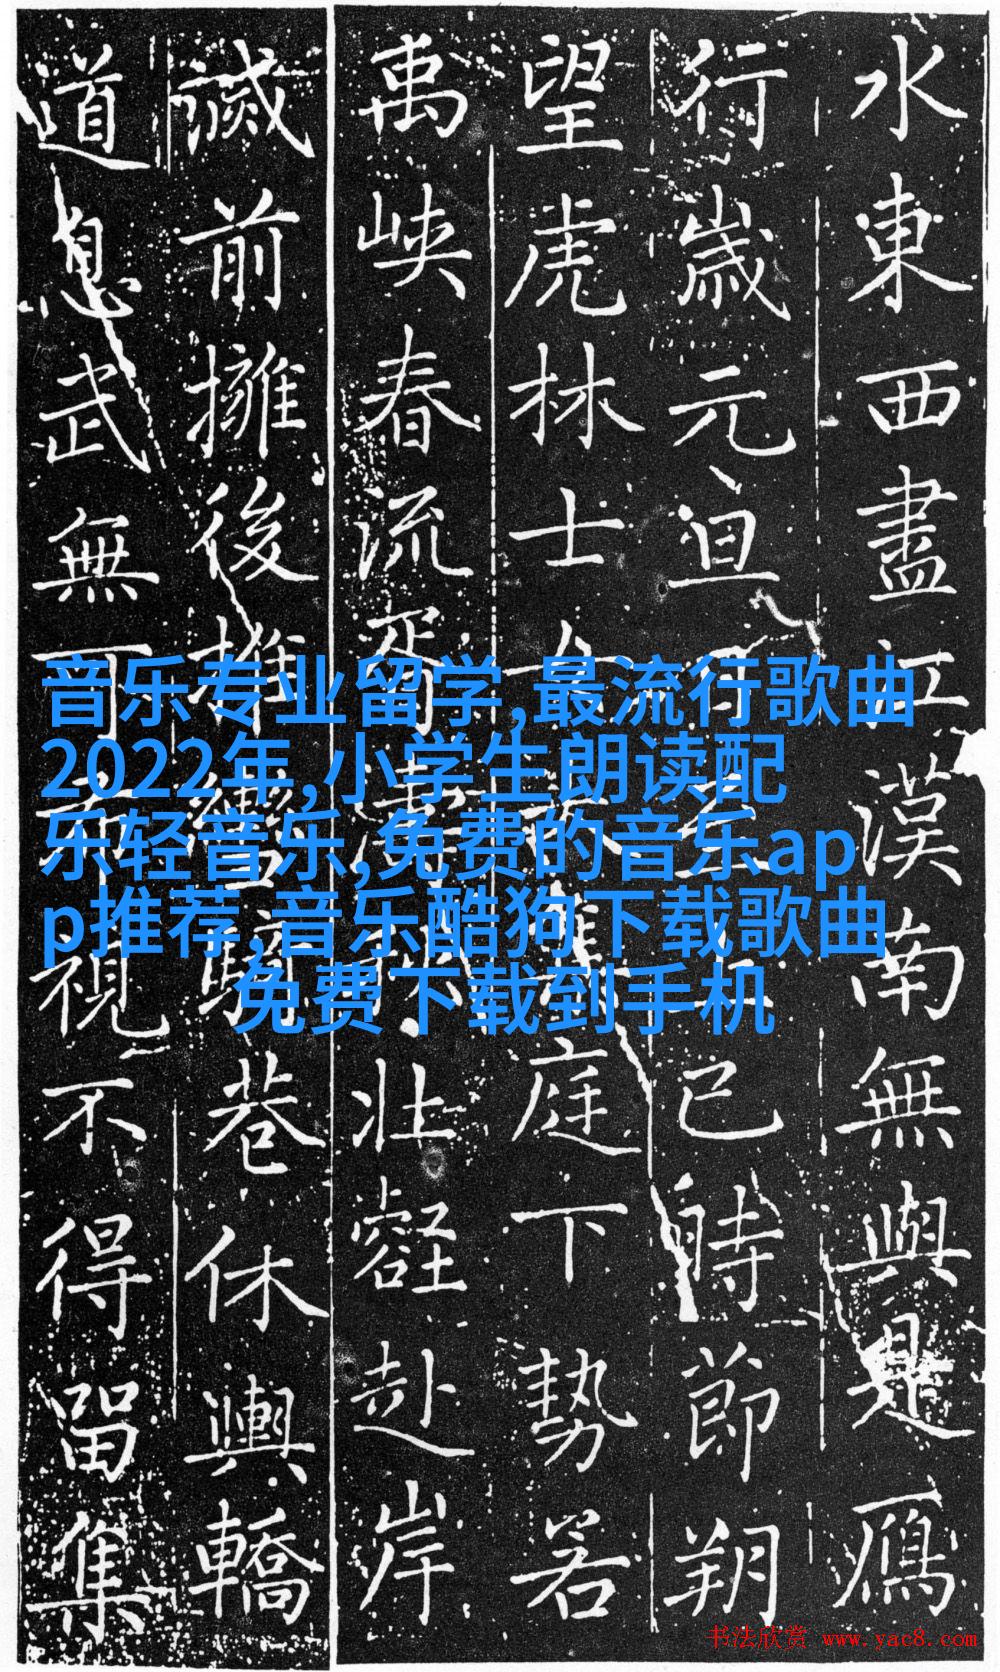 水東西盡江漢南無與是鴈
行歲元旦已時節朔
望虎林士女庭下勢若
禹峽春流胥濤秋壯壑赴岸
誡前擁後推巷休輿轎
道息武無可而視不得留集
音乐专业留学,最流行歌曲
2022年,小学生朗读配
乐轻音乐,免费的音乐ap
p推荐,音乐酷狗下载歌曲
免费下载到手机
书法欣赏 www.yac8.com